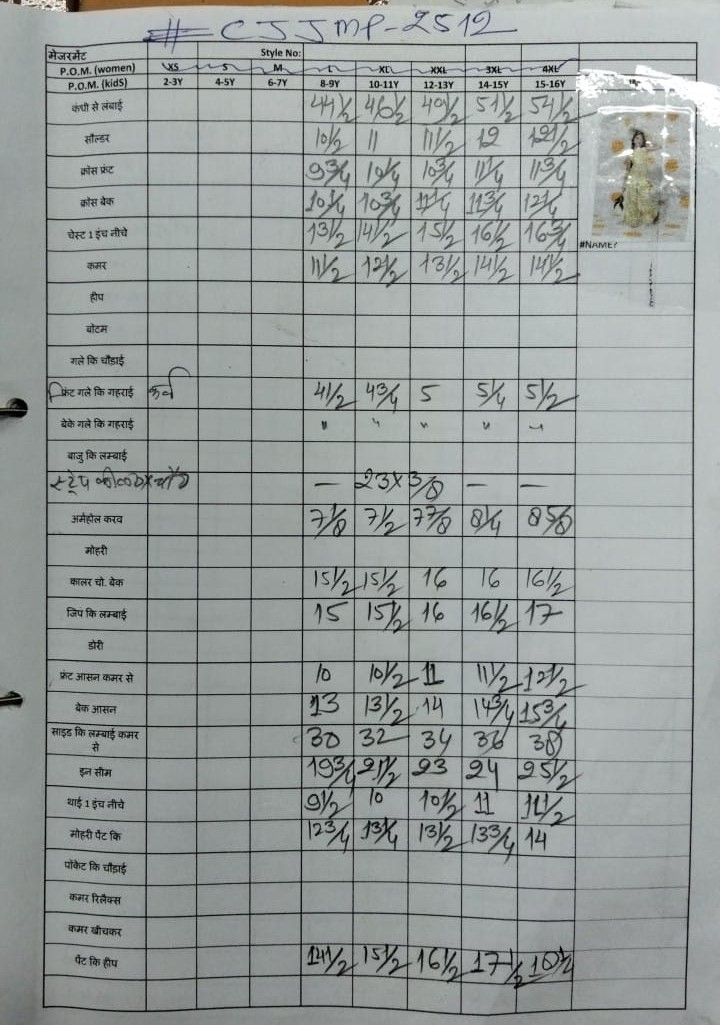 # CJJMP-2512
मेजरमेंट Style No:
P.O.M. (women) XS S M L XL XXL 3XL 4XL
P.O.M. (kidS) 2-3Y 4-5Y 6-7Y 8-9Y 10-11Y 12-13Y 14-15Y 15-16Y
कंधी से लंबाई 44 1/2 46 1/2 49 1/2 51 1/2 54 1/2
सौल्डर 10 1/2 11 11 1/2 12 12 1/2
क्रॉस फ्रंट 9 3/4 10 1/4 10 3/4 11 1/4 11 3/4
क्रॉस बेक 10 1/4 10 3/4 11 1/4 11 3/4 12 1/4
चेस्ट 1 इंच नीचे 13 1/2 14 1/2 15 1/2 16 1/2 16 3/4
#NAME?
कमर 11 1/2 12 1/2 13 1/2 14 1/2 14 1/2
हीप
बोटम
गले कि चौड़ाई
फ्रिंट गले कि गहराई कर्व 4 1/2 4 3/4 5 5 1/4 5 1/2
बेके गले कि गहराई " " " " "
बाजु कि लम्बाई
स्ट्रेप — 23 x 3/8 — —
अर्महोल करव 7 1/8 7 1/2 7 7/8 8 1/4 8 5/8
मोहरी
कालर चो. बेक 15 1/2 15 1/2 16 16 16 1/2
जिप कि लम्बाई 15 15 1/2 16 16 1/2 17
डोरी
फ्रंट आसन कमर से 10 10 1/2 11 11 1/2 12 1/2
बेक आसन 13 13 1/2 14 14 3/4 15 3/4
साइड कि लम्बाई कमर से 30 32 34 36 38
इन सीम 19 3/4 21 1/2 23 24 25 1/2
थाई 1 इंच नीचे 9 1/2 10 10 1/2 11 11 1/2
मोहरी पैट कि 12 3/4 13 1/4 13 1/2 13 3/4 14
पॉकेट कि चौड़ाई
कमर रिलैक्स
कमर खीचकर
पैट कि हीप 14 1/2 15 1/2 16 1/2 17 1/2 18 1/2